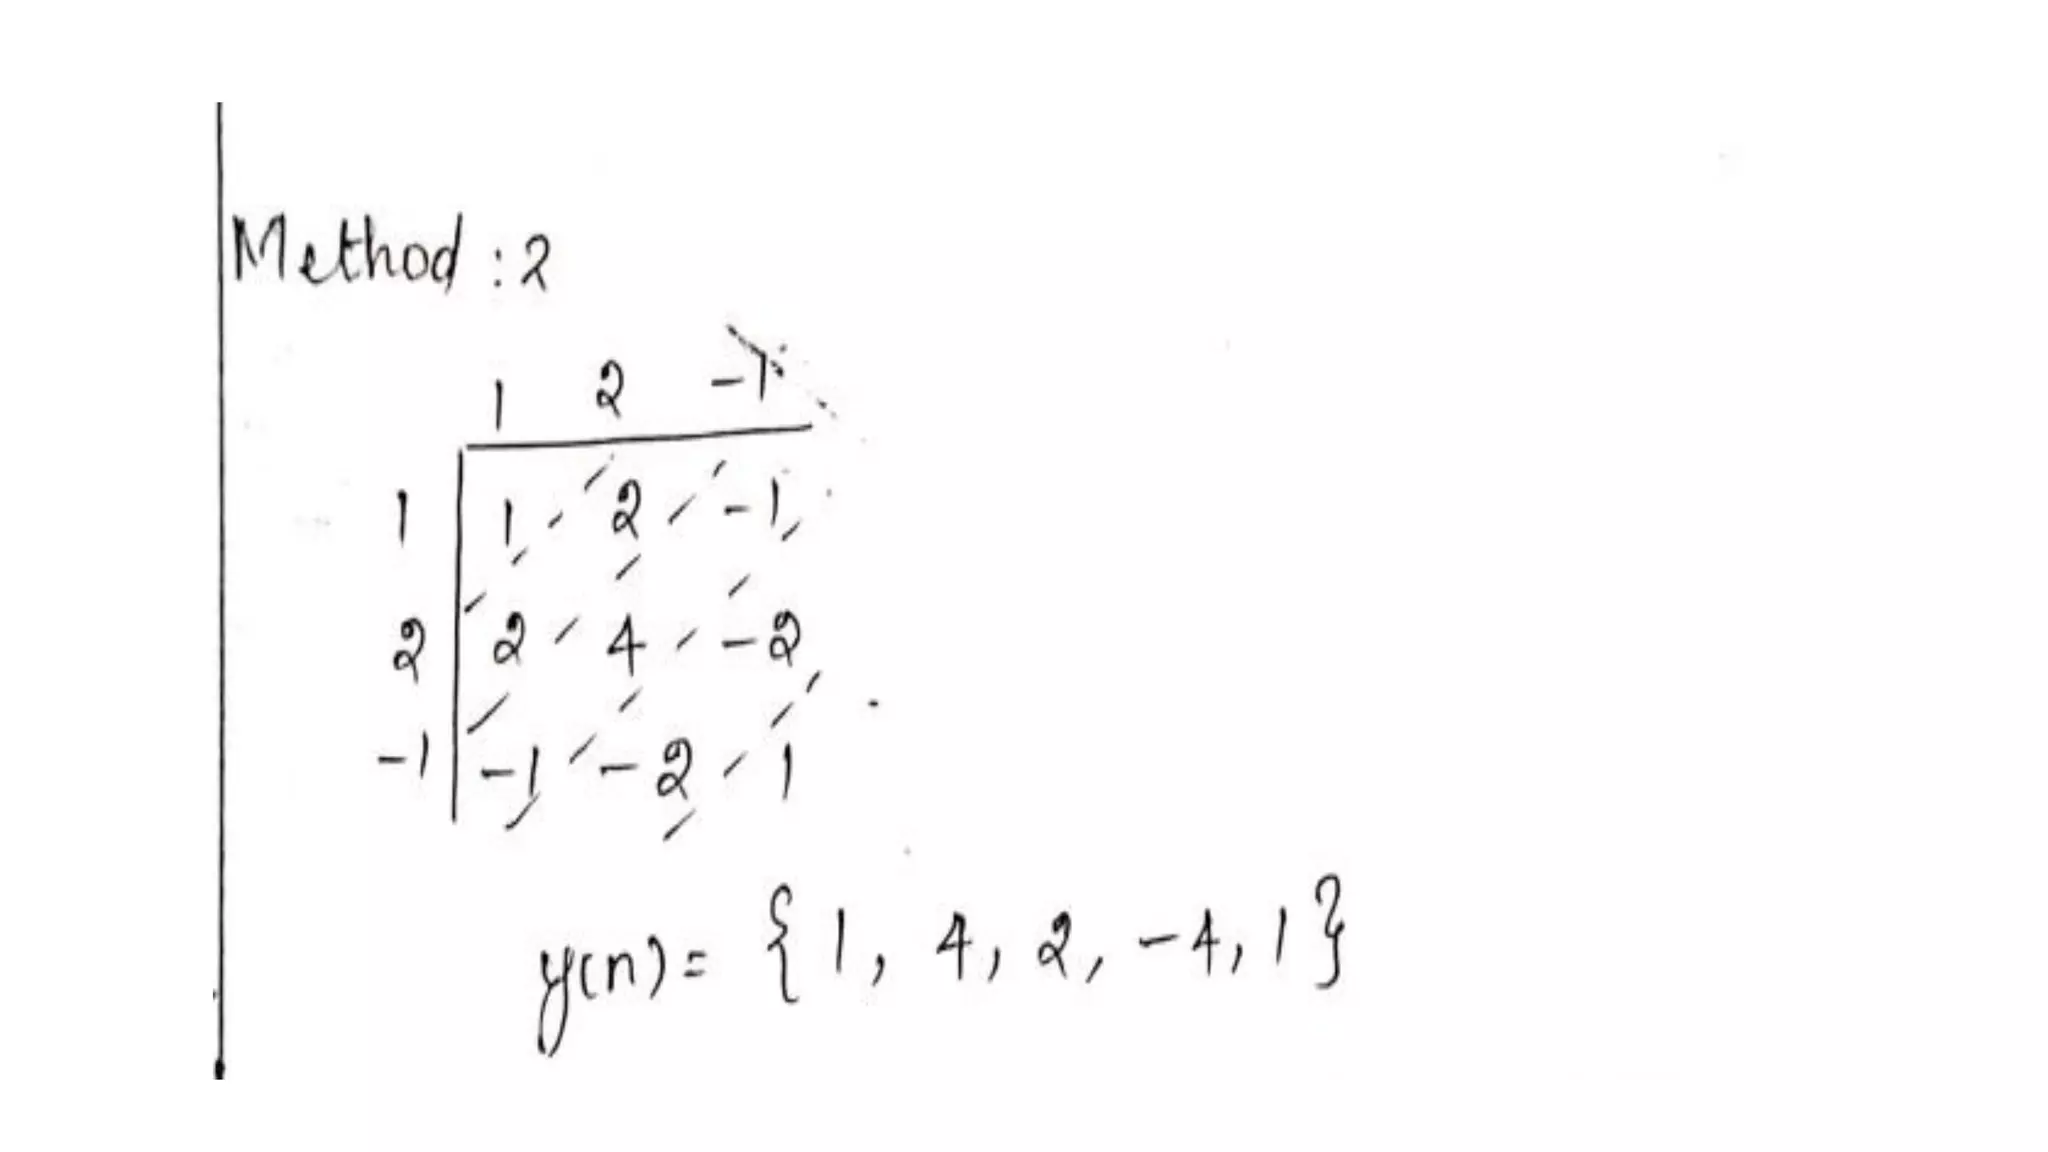 Method : 2
1 2 -1
1 1 2 -1
2 2 4 -2
-1 -1 -2 1
y(n) = { 1, 4, 2, -4, 1 }